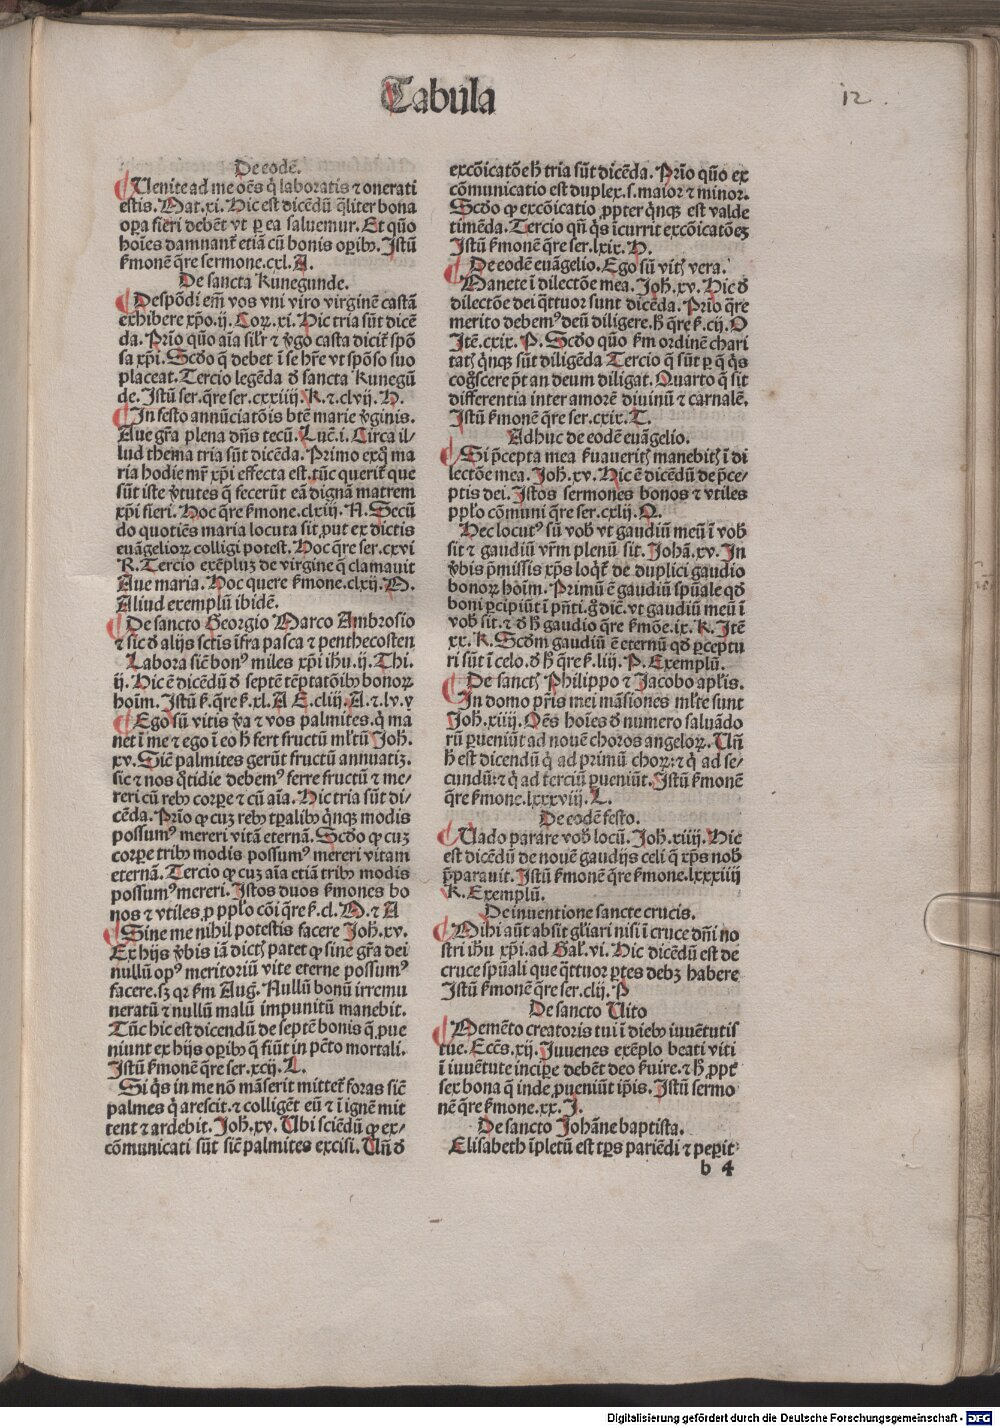 Tabula
12.
De eodē.
Uenite ad me oēs q̄ laboratis ⁊ onerati
estis. Mat. xi. Hic est dicēdū q̄liter bona
oꝑa fieri debēt vt ꝑ ea saluemur. Et quō
hoīes damnant᷑ etiā cū bonis oꝑibꝰ. Istū
ẜmonē q̄re sermone. cxl. A.
De sancta Kunegunde.
Despōdi em̄ vos vni viro virginē castā
exhibere xp̄o. ij. Coꝝ. xi. Hic tria sūt dicē
da. Prīo quō aīa sil'r ⁊ v̄go casta dicit᷑ spō
sa xp̄i. Scd̓o q̄ debet ī se hr̄e vt spōso suo
placeat. Tercio legēda d̓ sancta Kunegū
de. Istū ser. q̄re ser. cxxiiij. K. ⁊. clvij. H.
In festo annūciatōis btē marie v̄ginis.
Aue gr̄a plena dn̄s tecū. Luc̄. i. Circa il/
lud thema tria sūt dicēda. Primo exq̄ ma
ria hodie mr̄ xp̄i effecta est. tūc querit᷑ que
sūt iste v̄tutes q̄ fecerūt eā dignā matrem
xp̄i fieri. Hoc q̄re ẜmone. clxiij. N. Secū
do quotiēs maria locuta sit ꝓut ex dictis
euāgelioꝝ colligi potest. Hoc q̄re ser. cxvi
R. Tercio exēpluꝫ de virgine q̄ clamauit
Aue maria. Hoc quere ẜmone. clxij. M.
Aliud exemplū ibidē.
De sancto Georgio Marco Ambrosio
⁊ sic d̓ alijs sctīs īfra pasca ⁊ penthecosten
Labora sic̄ bonꝰ miles xp̄i ih̄u. ij. Thi.
ij. Hic ē dicēdū d̓ septē tēptatōibꝰ bonoꝝ
hoīm. Istū ẜ. q̄re ẜ. xl. A E. cliij. A. ⁊. lv. v
Ego sū vitis v̄a ⁊ vos palmites. q̄ ma
net ī me ⁊ ego ī eo h̄ fert fructū ml̄tū Joh̄.
xv. Sic̄ palmites gerūt fructū annuatiꝫ.
sic ⁊ nos q̄tidie debemꝰ ferre fructū ⁊ me/
reri cū rebꝰ corꝑe ⁊ cū aīa. Hic tria sūt di/
cēda. Prīo ꝙ cuꝫ rebꝰ tꝑalibꝰ q̄nqꝫ modis
possumꝰ mereri vitā eternā. Scd̓o ꝙ cuꝫ
corꝑe tribꝰ modis possumꝰ mereri vitam
eternā. Tercio ꝙ cuꝫ aīa etiā tribꝰ modis
possumꝰ mereri. Istos duos ẜmones bo
nos ⁊ vtiles ꝓ pp̄lo cōi q̄re ẜ. cl. M. ⁊ A
Sine me nihil potestis facere Joh̄. xv.
Ex hijs v̄bis iā dict̓ patet ꝙ sine gr̄a dei
nullū opꝰ meritoriū vite eterne possumꝰ
facere. sꝫ qꝛ ẜm Aug. Nullū bonū irremu
neratū ⁊ nullū malū impunitū manebit.
Tūc hic est dicendū de septē bonis q̄ ꝓue
niunt ex hijs oꝑibꝰ q̄ fiūt in pc̄to mortali.
Istū ẜmonē q̄re ser. xcij. L.
Si q̄s in me nō māserit mittet᷑ foras sic̄
palmes q̄ arescit. ⁊ colligēt eū ⁊ ī ignē mit
tent ⁊ ardebit. Joh̄. xv. Ubi sciēdū ꝙ ex/
cōmunicati sūt sic̄ palmites excisi. Un̄ d̓
excōicatōe h̄ tria sūt dicēda. Prīo quō ex
cōmunicatio est duplex. s. maior ⁊ minor.
Scd̓o ꝙ excōicatio ꝓpter q̄nqꝫ est valde
timēda. Tercio qn̄ q̄s icurrit excōicatōeꝫ
Istū ẜmonē q̄re ser. lxix. H.
De eodē euāgelio. Ego sū vit̓ vera.
Manete ī dilectōe mea. Joh̄. xv. Hic d̓
dilectōe dei q̄ttuor sunt dicēda. Prīo q̄re
merito debemꝰ deū diligere. h̄ q̄re ẜ. cij. O
Itē. cxix. P. Scd̓o quō ẜm ordinē chari
tat̓ q̄nqꝫ sūt diligēda Tercio q̄ sūt ꝑ q̄ q̄s
cog̓scere p̄t an deum diligat. Quarto q̄ sit
differentia inter amorē diuinū ⁊ carnalē.
Istū ẜmonē q̄re ser. cxix. T.
Adhuc de eodē euāgelio.
Si p̄cepta mea ẜuauerit̓ manebit̓ ī di
lectōe mea. Joh̄. xv. Hic ē dicēdū de p̄ce/
ptis dei. Istos sermones bonos ⁊ vtiles
pp̄lo cōmuni q̄re ser. cxlij. Q.
Hec locutꝰ sū vob̓ vt gaudiū meū ī vob̓
sit ⁊ gaudiū vr̄m plenū sit. Johā. xv. In
v̄bis p̄missis xp̄s loqt᷑ de duplici gaudio
bonoꝝ hoīm. Primū ē gaudiū spūale qd̓
boni ꝑcipiūt ī pn̄ti. g̓ dic̄. vt gaudiū meū ī
vob̓ sit. ⁊ d̓ h̄ gaudio q̄re ẜmōe. ix. K. Itē
xx. K. Scd̓m gaudiū ē eternū qd̓ ꝑceptu
ri sūt ī celo. d̓ h̄ q̄re ẜ. liij. P. Exemplū.
De sanct̓ Philippo ⁊ Jacobo apl̄is.
In domo pr̄is mei māsiones ml̄te sunt
Joh̄. xiiij. Oēs hoīes d̓ numero saluādo
rū ꝑueniūt ad nouē choros angeloꝝ. Un̄
h̄ est dicendū q̄ ad primū choꝝ: ⁊ q̄ ad se/
cundū: ⁊ q̄ ad terciū ꝑueniūt. Istū ẜmonē
q̄re ẜmone. lxxxviij. L.
De eodē festo.
Uado parare vob̓ locū. Joh̄. xiiij. Hic
est dicēdū de nouē gaudijs celi q̄ xp̄s nob̓
p̄parauit. Istū ẜmonē q̄re ẜmone. lxxxiiij
K. Exemplū.
De inuentione sancte crucis.
Mihi aūt absit gl̄iari nisi ī cruce dn̄i no
stri ih̄u xp̄i. ad Gal̄. vi. Hic dicēdū est de
cruce spūali que q̄ttuor ꝑtes debꝫ habere
Istū ẜmonē q̄re ser. clij. P
De sancto Uito
Memēto creatoris tui ī diebꝰ iuuētutis
tue. Ecc̄s. xij. Juuenes exēplo beati viti
ī iuuētute incipe debēt deo ẜuire. ⁊ h̄ ꝓpt̓
sex bona q̄ inde ꝓueniūt ip̄is. Istū sermo
nē q̄re ẜmone. xx. J.
De sancto Johāne baptista.
Elisabeth īpletū est tp̄s pariēdi ⁊ peꝑit
b 4
Digitalisierung gefördert durch die Deutsche Forschungsgemeinschaft - DFG